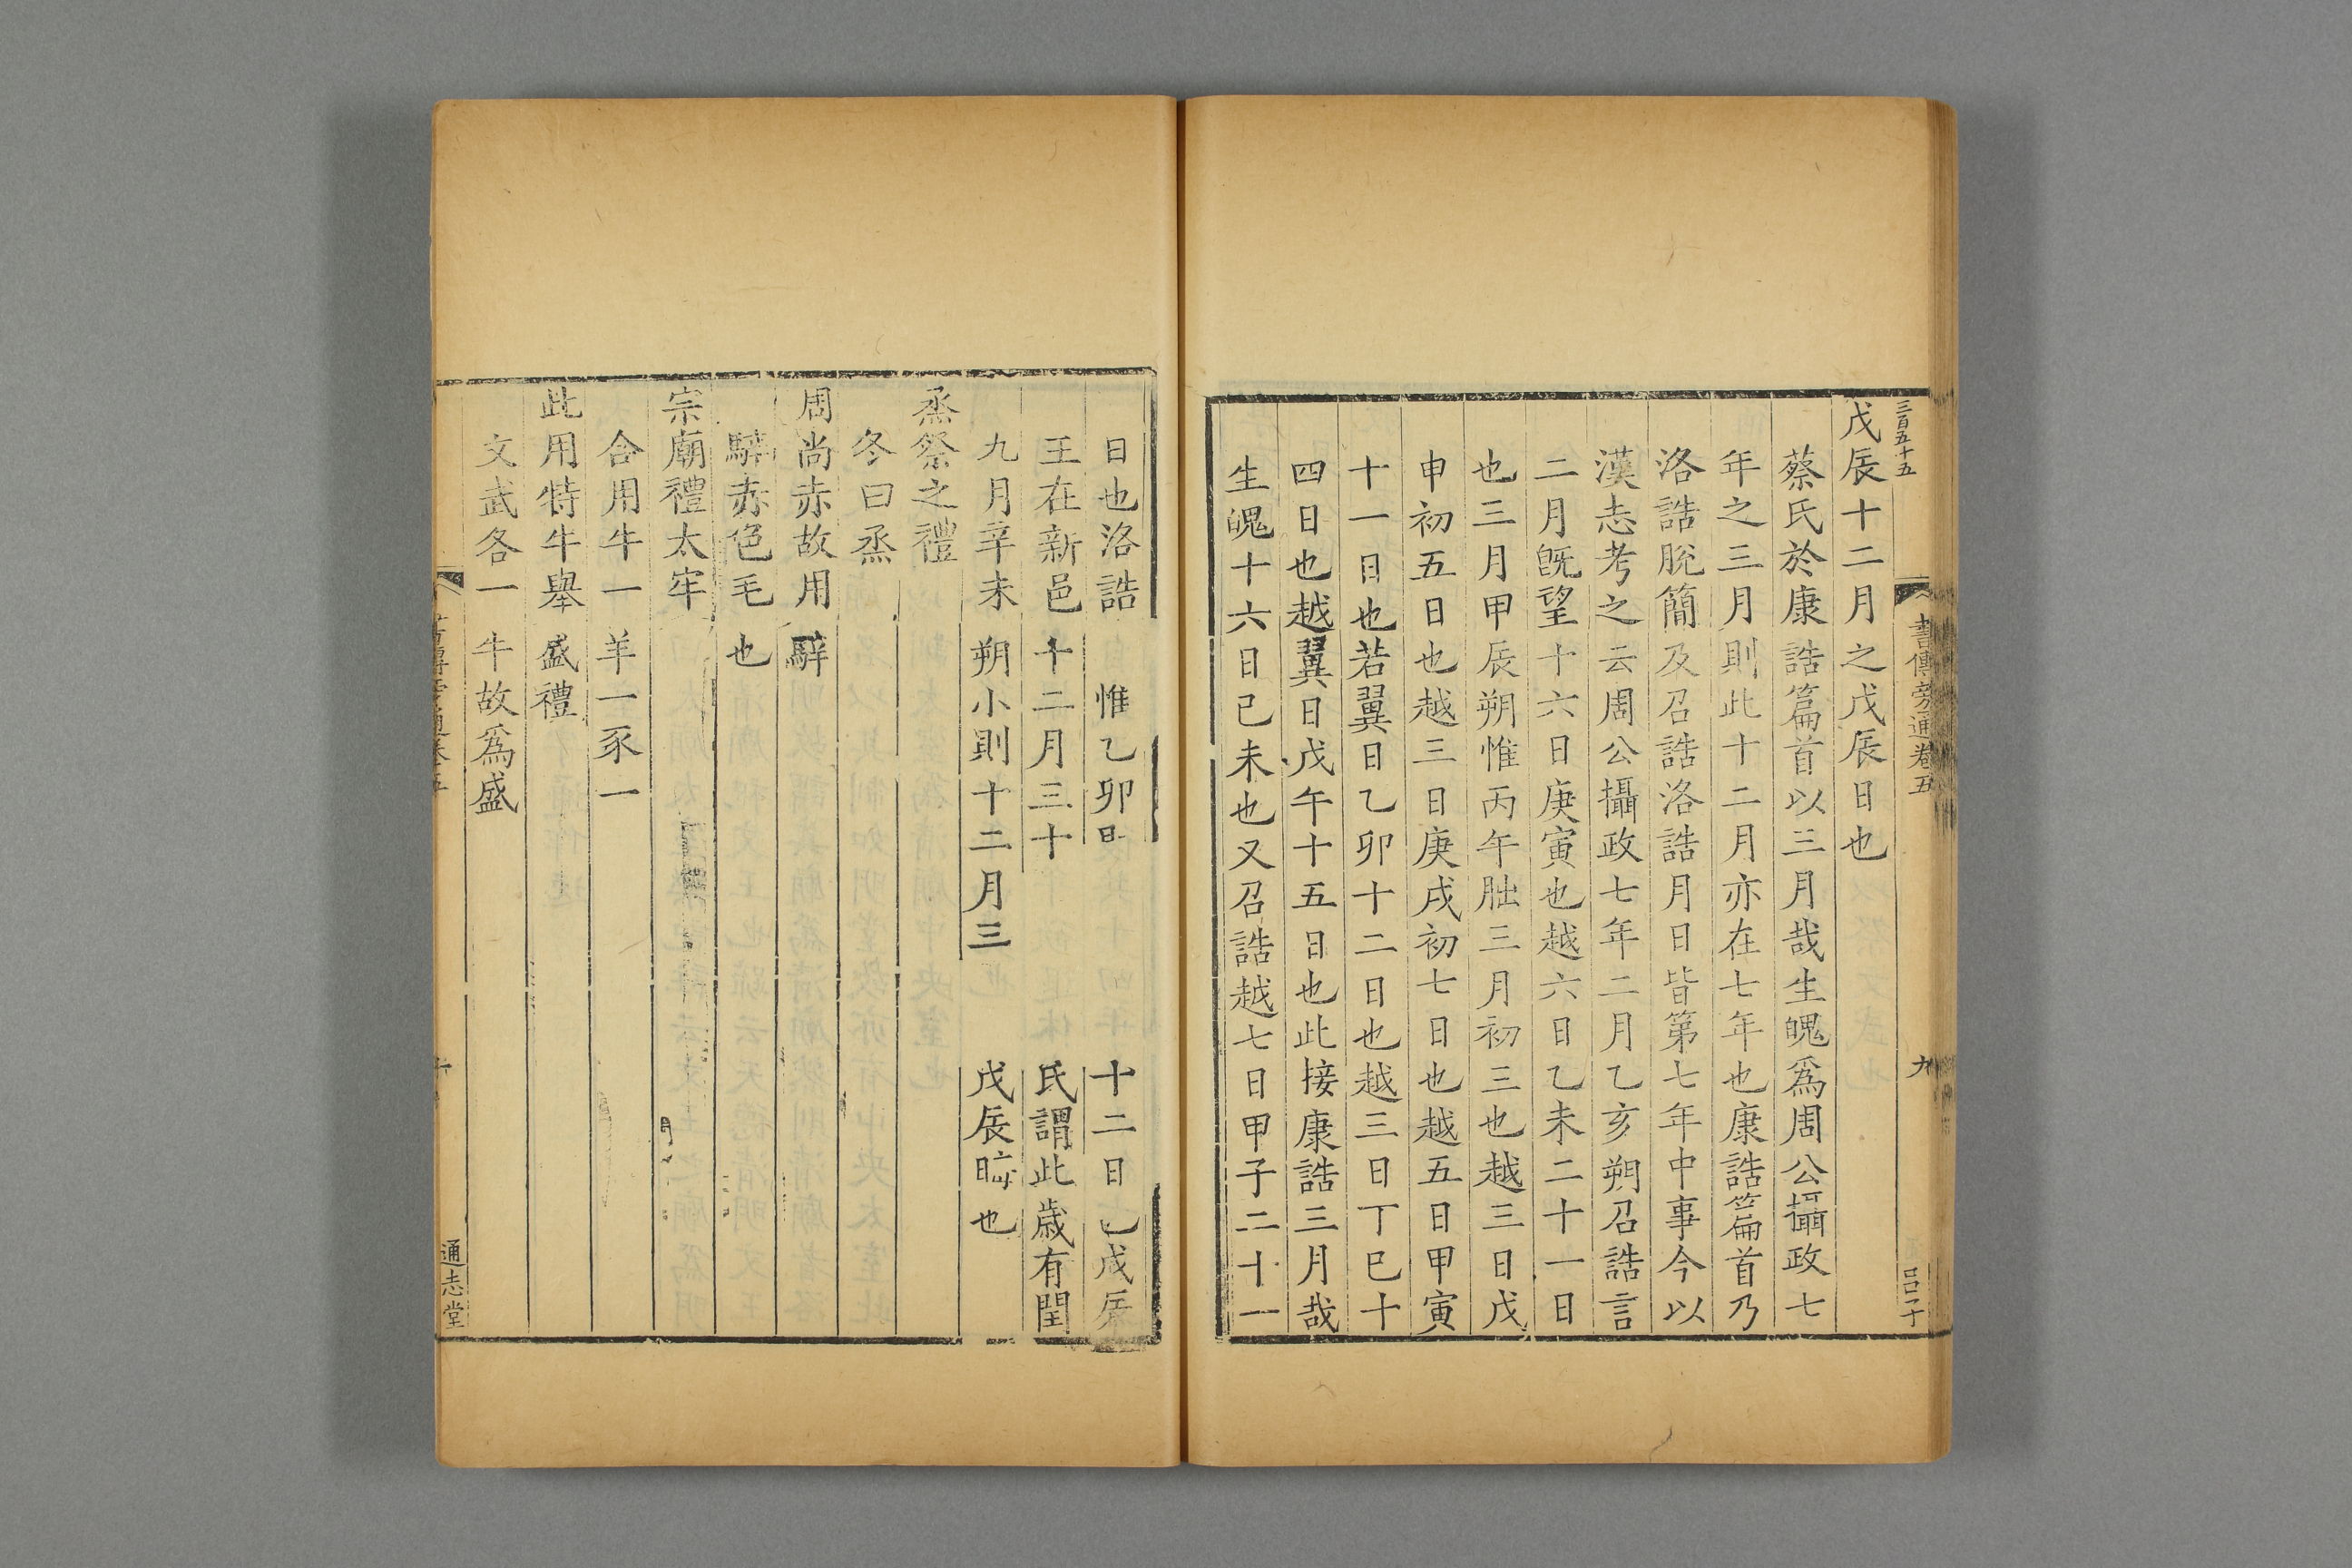 三百五十五
書傳旁通卷五
九
呂子
戊辰十二月之戊辰日也
蔡氏於康誥篇首以三月哉生魄爲周公攝政七
年之三月則此十二月亦在七年也康誥篇首乃
洛誥脫簡及召誥洛誥月日皆第七年中事今以
漢志考之云周公攝政七年二月乙亥朔召誥言
二月旣望十六日庚寅也越六日乙未二十一日
也三月甲辰朔惟丙午朏三月初三也越三日戊
申初五日也越三日庚戌初七日也越五日甲寅
十一日也若翼日乙卯十二日也越三日丁巳十
四日也越翼日戊午十五日也此接康誥三月哉
生魄十六日己未也又召誥越七日甲子二十一
日也洛誥惟乙卯十二日也戊辰
王在新邑十二月三十氏謂此歲有閏
九月辛未朔小則十二月三戊辰晦也
烝祭之禮
冬曰烝
周尚赤故用騂
騂赤色毛也
宗廟禮太牢
合用牛一羊一豕一
此用特牛舉盛禮
文武各一牛故爲盛
書傳旁通卷五
十
通志堂